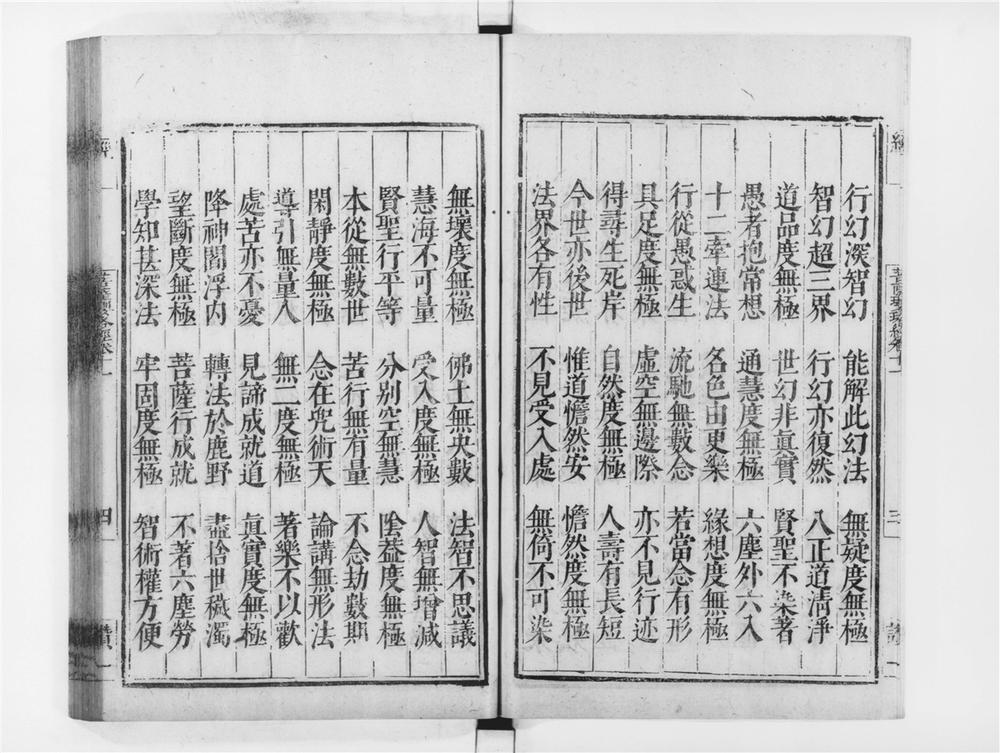 行幻深智幻 能解此幻法 無疑度無極
智幻超三界 行幻亦復然 八正道清淨
道品度無極 世幻非真實 賢聖不染著
愚者抱常想 通慧度無極 六塵外六入
十二牽連法 各色由更樂 緣想度無極
行從愚惑生 流馳無數念 若當念有形
具足度無極 虛空無邊際 亦不見行迹
得尋生死岸 自然度無極 人壽有長短
今世亦後世 惟道憺然安 憺然度無極
法界各有性 不見受入處 無倚不可染
無壞度無極 佛土無央數 法智不思議
慧海不可量 受入度無極 人智無增減
賢聖行平等 分别空無慧 陰蓋度無極
本從無數世 苦行無有量 不念劫數期
閑靜度無極 念在咒術天 論講無形法
導引無量人 無二度無極 著樂不以歡
處苦亦不憂 見諦成就道 眞實度無極
降神閻浮内 轉法於鹿野 盡捨世穢濁
望斷度無極 菩薩行成就 不著六塵勞
學知甚深法 牢固度無極 智術權方便
四